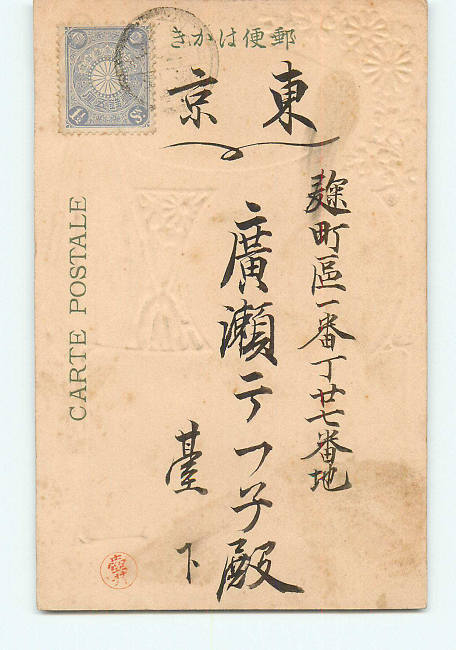 郵便はかき
東京
麹町區一番丁廿七番地
廣瀬テフ子殿
臺下
CARTE POSTALE
1½ Sn